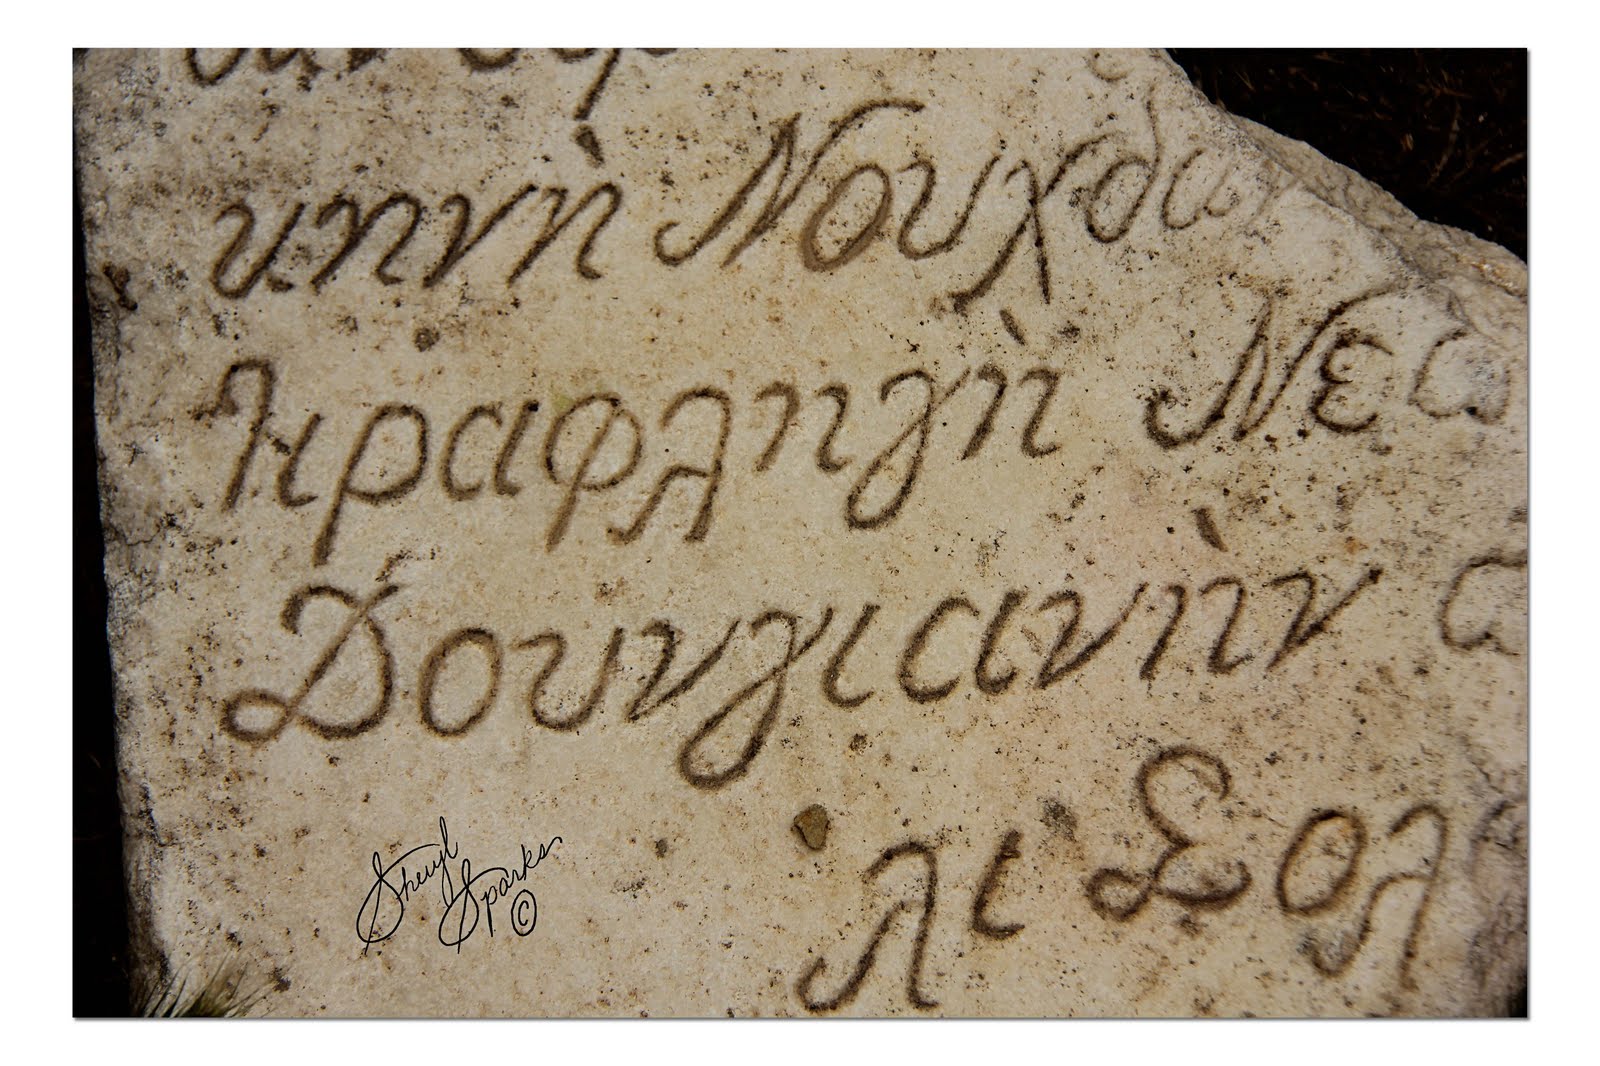 κηνὴ Νουχδω
Ηραφληγὴ Νεω
Δουνγιανὴν
λι Σολ
Sheryl Sparks ©